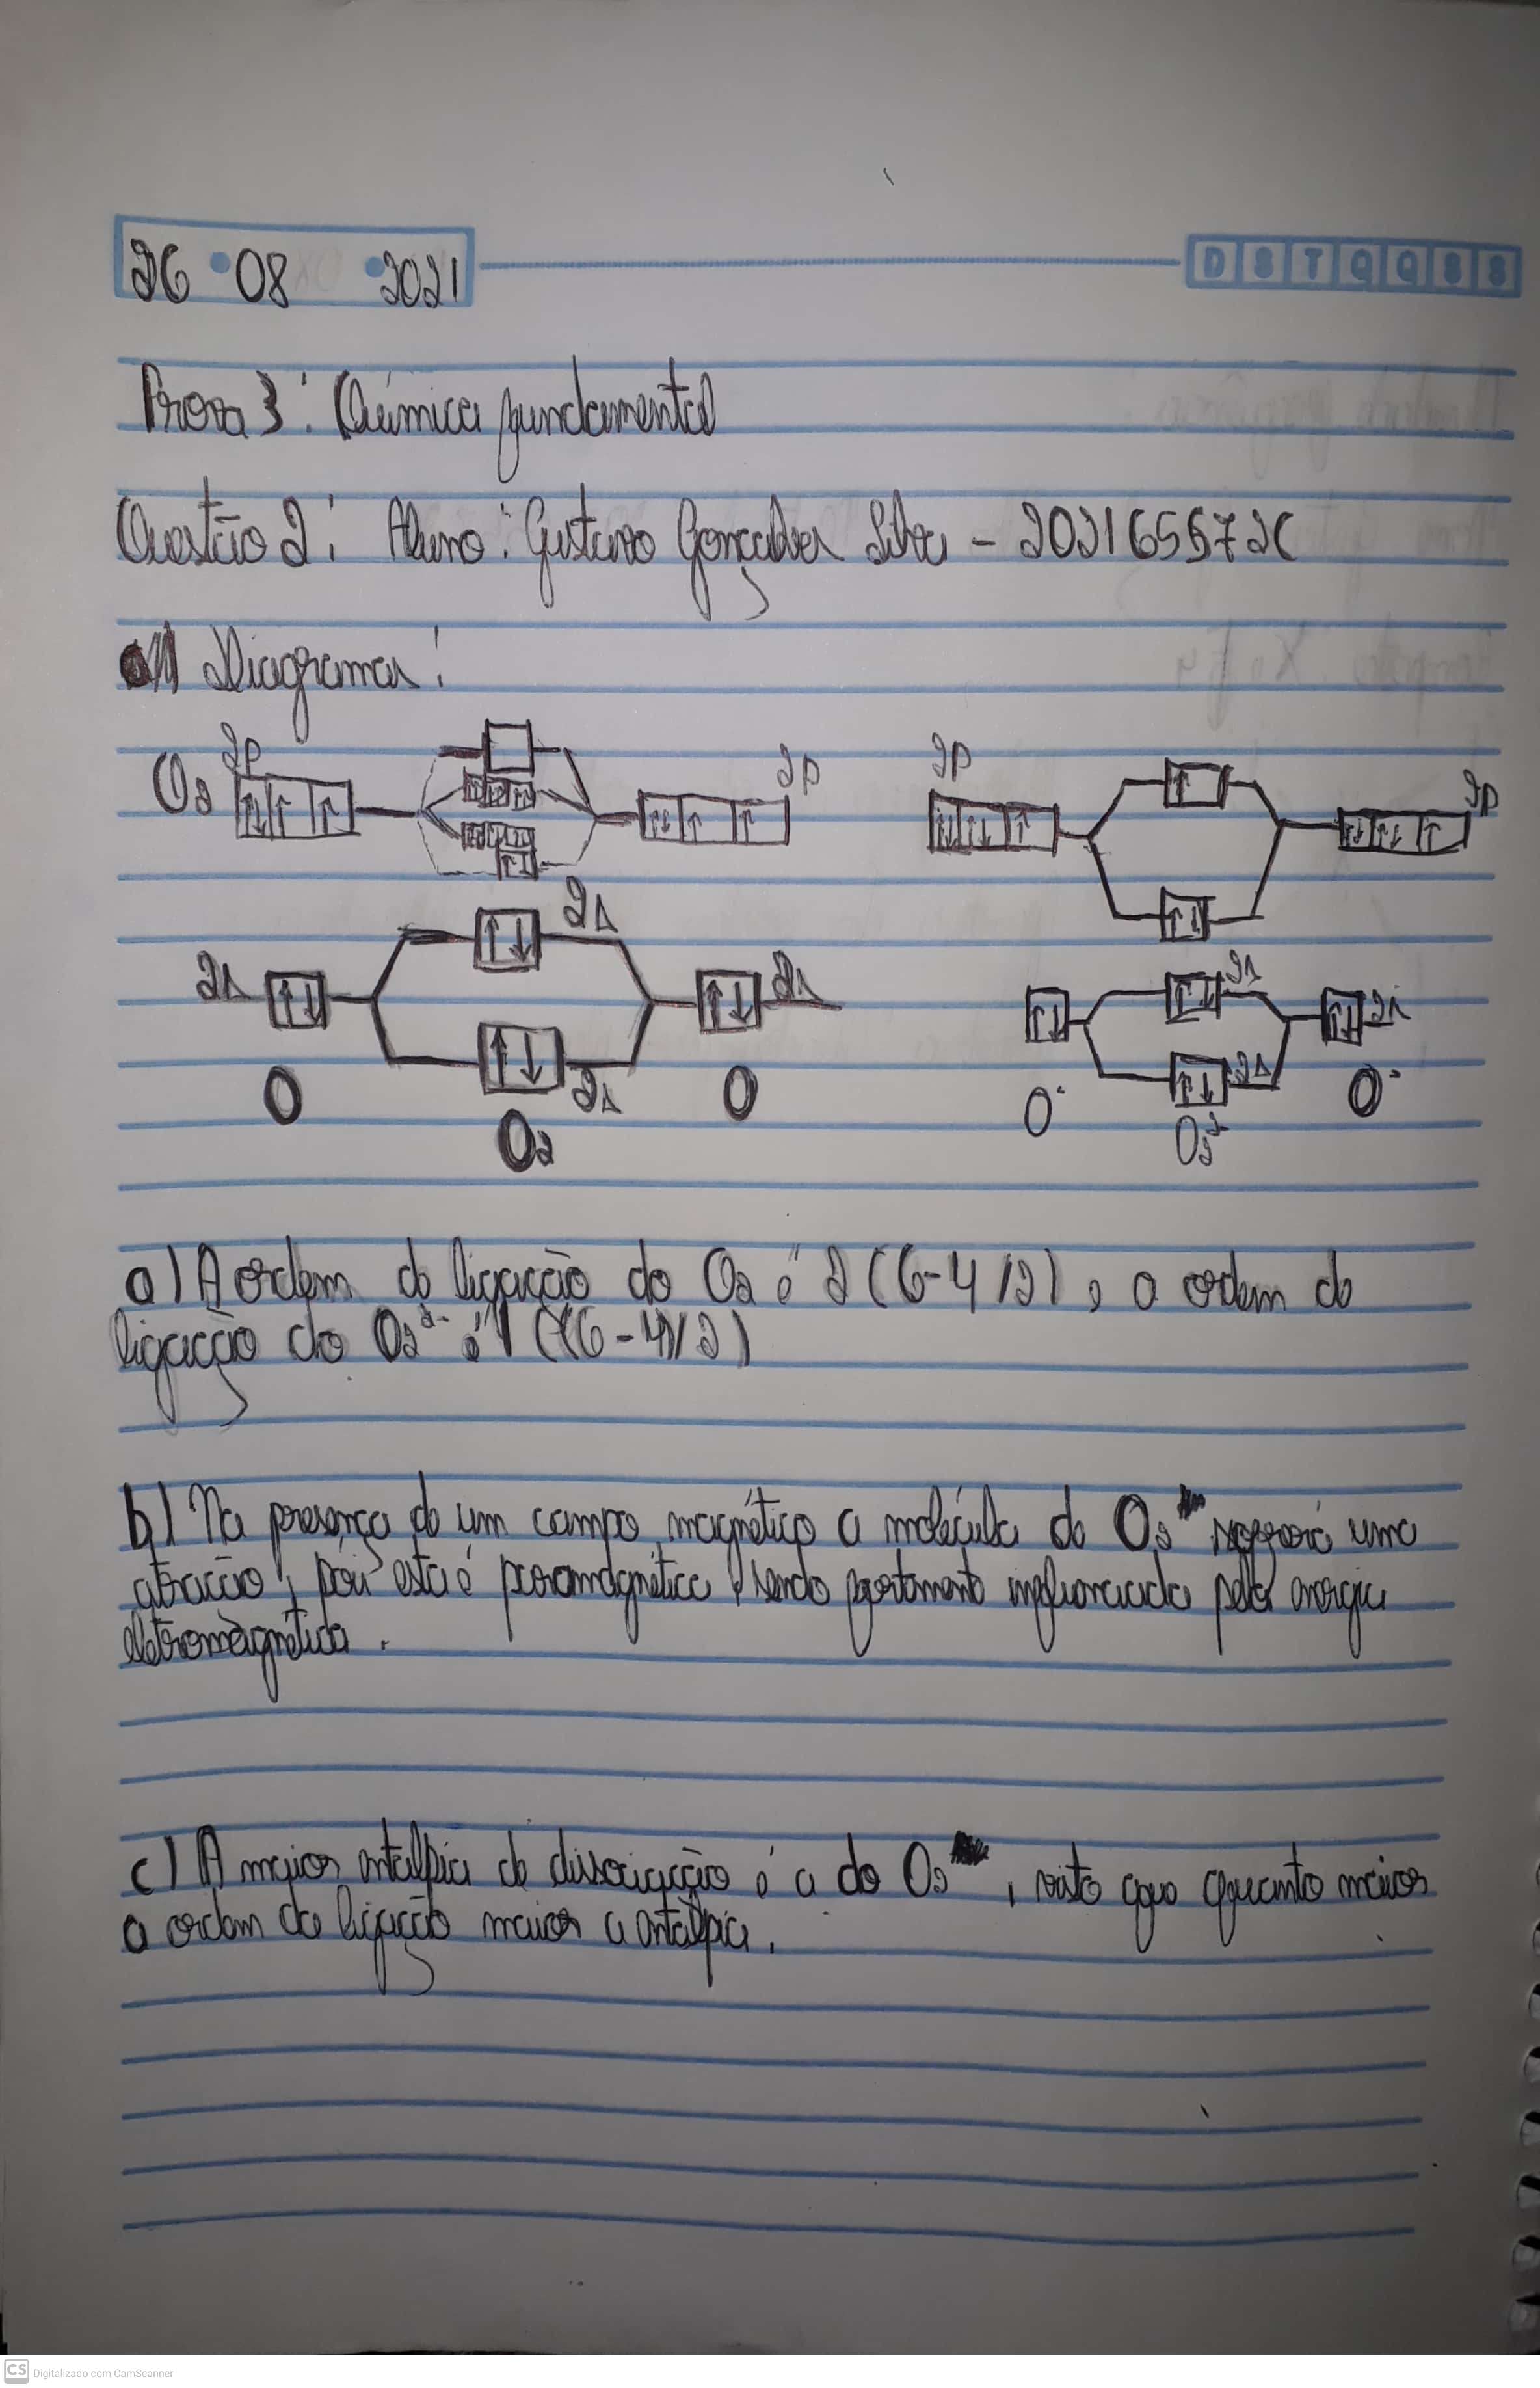 26 08 2021
D S T Q Q S S
Prova 3: Química fundamental
Questão 2: Aluno: Gustavo Gonçalves
Diagramas:
O2 2p 2p 2p 2p
2s 2s 2s 2s
2s 2s 2s
O O2 O O⁻ O2²⁻ O⁻
a) A ordem de ligação do O2 é 2 (6-4/2), a ordem de
ligação do O2²⁻ é 1
b) Na presença de um campo magnético a molécula de O2 sofrerá uma
atração, pois esta é paramagnética, sendo fortemente influenciada pela energia
eletromagnética.
c) A maior entalpia de dissociação é a do O2, visto que quanto maior
a ordem de ligação maior a entalpia.
CS Digitalizado com CamScanner